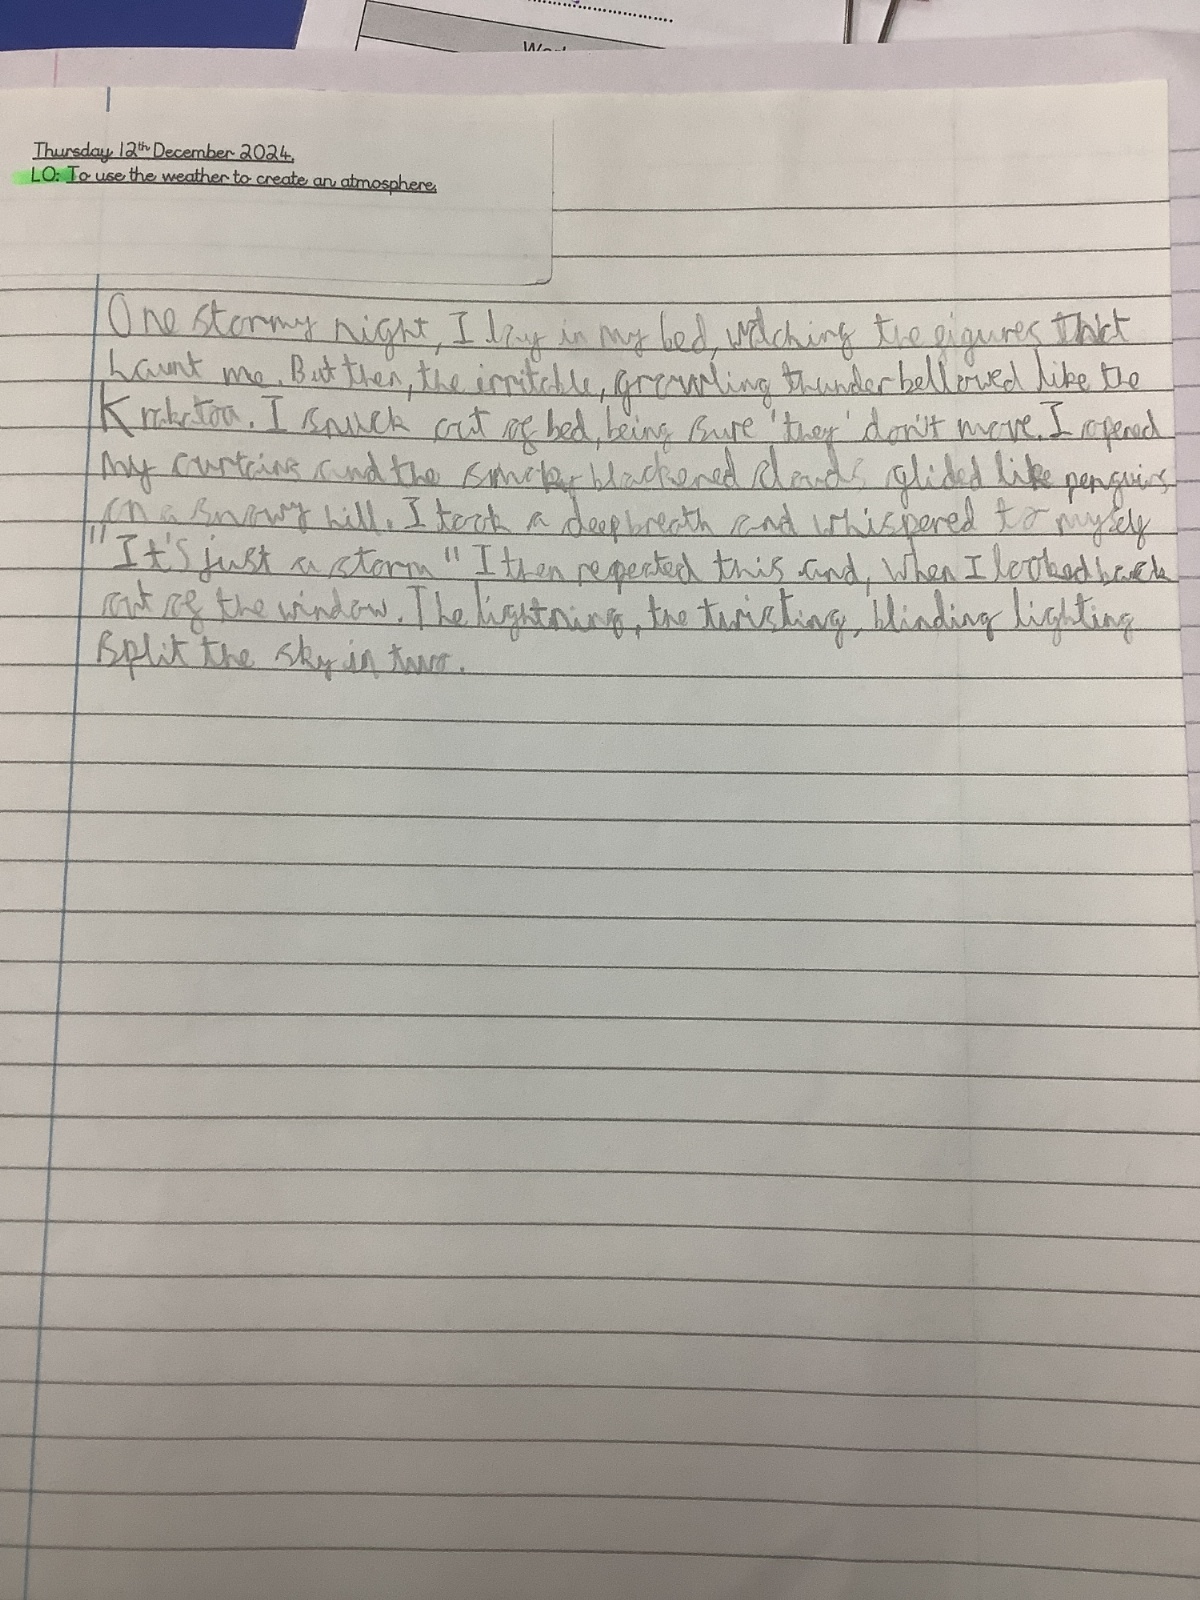 Thursday 12th December 2024.
LO: To use the weather to create an atmosphere.
One stormy night, I lay in my bed, watching the figures that
haunt me. But then, the irritable, growling thunder bellowed like the
Krakatoa. I snuck out of bed, being sure 'they' don't move. I opened
my curtains and the smokey blackened clouds glided like penguins
on a snowy hill. I took a deep breath and whispered to myself
"It's just a storm" I then repeated this and, when I looked back
out of the window. The lightning, the twisting, blinding lighting
split the sky in two.